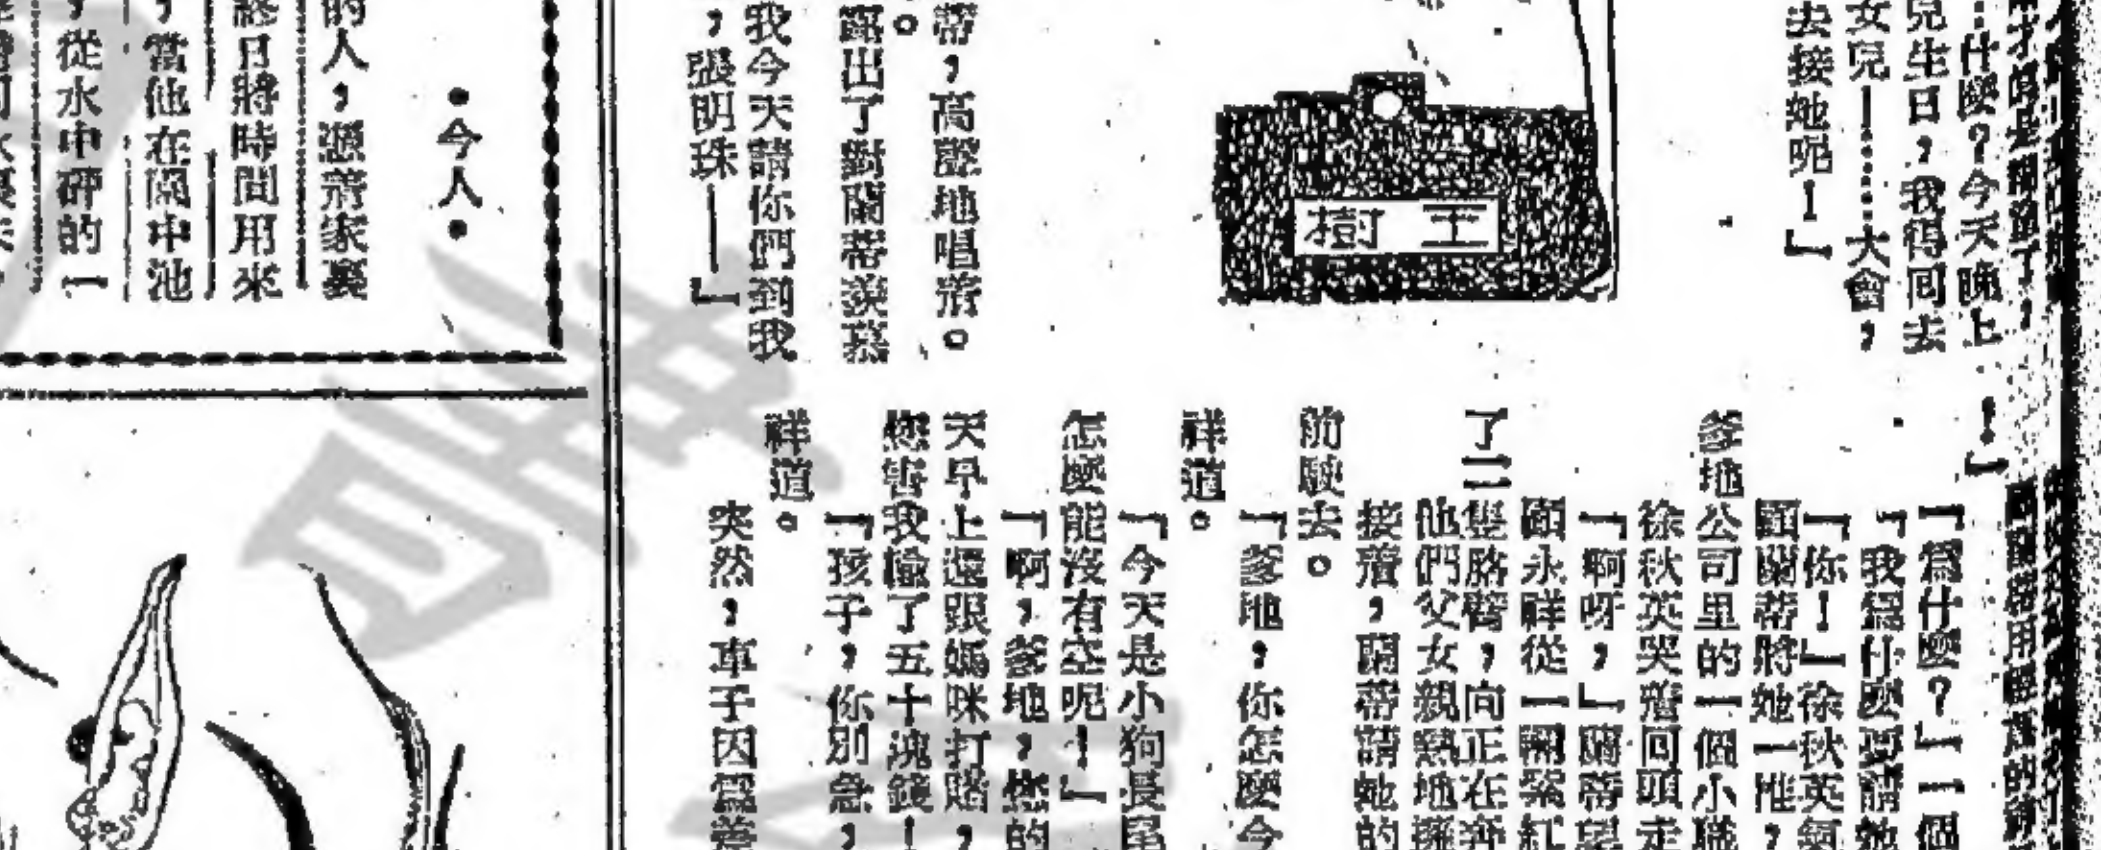 …什麼？今天晚上
兒生日，我得回去
女兒——……大會，
去接她呢！」
樹王
蒂，高聲地唱着。
。
露出了對蘭蒂羨慕
我今天請你們到我
，張明珠——」
！」
「爲什麼？」一個
「我爲什麼要請她
「你！」徐秋英氣
顧蘭蒂將她一推，
爹地公司里的一個小職
徐秋英哭着回頭走
「啊呀，」蘭蒂望
顧永祥從一輛紫紅
了二隻胳臂，向正在奔
他們父女親熱地擁
接着，蘭蒂請她的
前駛去。
「爹地，你怎麼今
祥道。
「今天是小狗長尾
怎麼能沒有空呢！」
「啊，爹地，您的
天早上還跟媽咪打賭，
您害我輸了五十塊錢！
「孩子，你別急，
祥道。
突然，車子因爲差
•今人•
的人，憑着家裏
終日將時間用來
，當他在園中池
，從水中砰的一